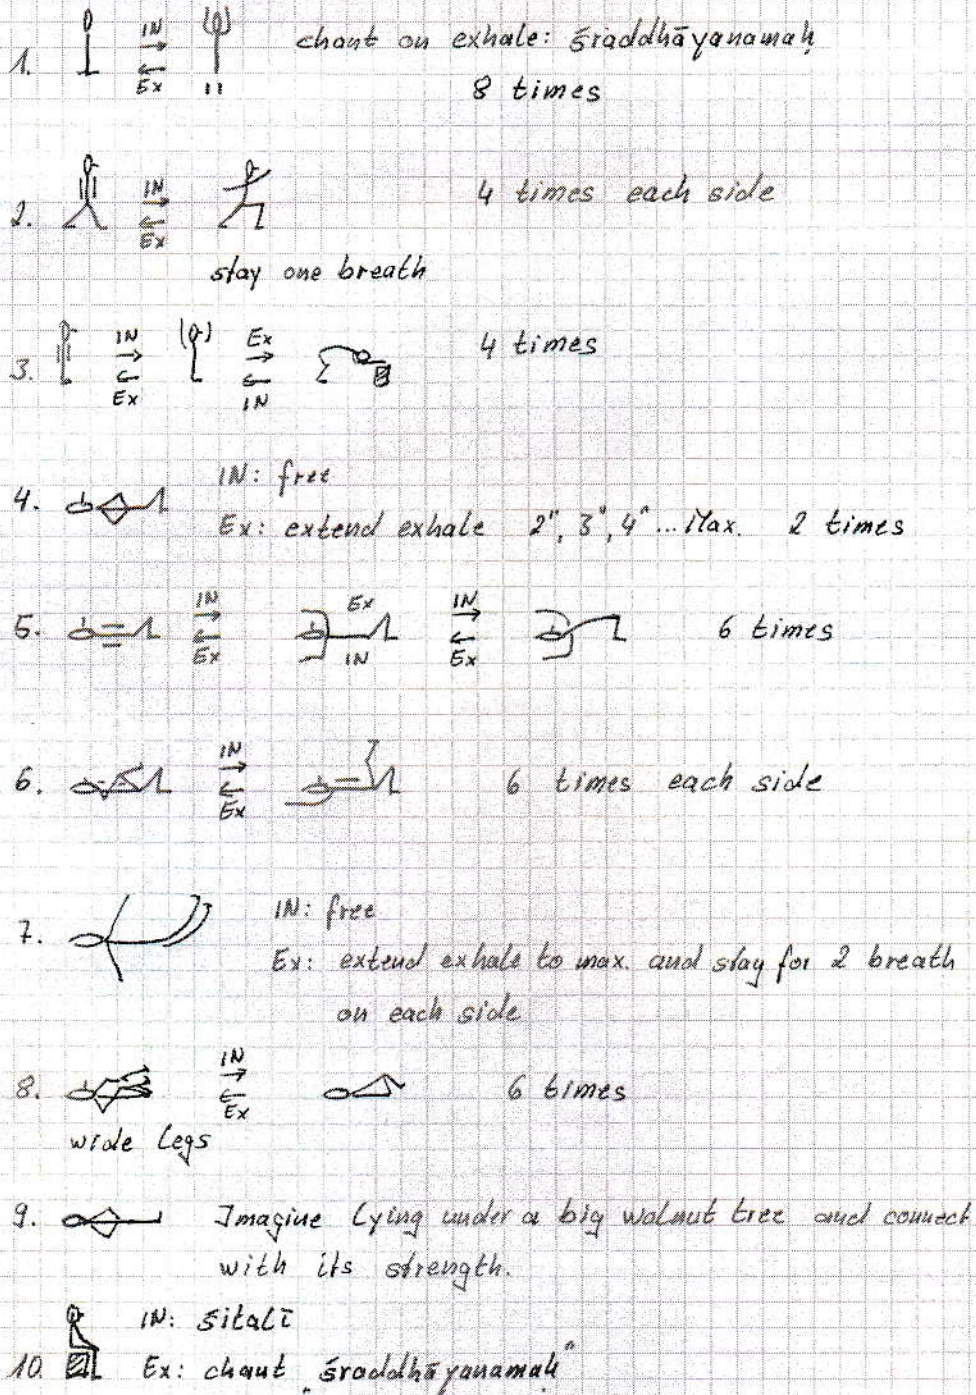 1. IN Ex chant on exhale: śraddhāyanamaḥ
8 times
2. IN Ex 4 times each side
stay one breath
3. IN Ex Ex IN 4 times
4. IN: free
Ex: extend exhale 2", 3", 4" ... Max. 2 times
5. IN Ex Ex IN IN Ex 6 times
6. IN Ex 6 times each side
7. IN: free
Ex: extend exhale to max. and stay for 2 breath
on each side
8. IN Ex 6 times
wide legs
9. Imagine lying under a big walnut tree and connect
with its strength.
IN: śitalī
10. Ex: chant „śraddhāyanamaḥ"